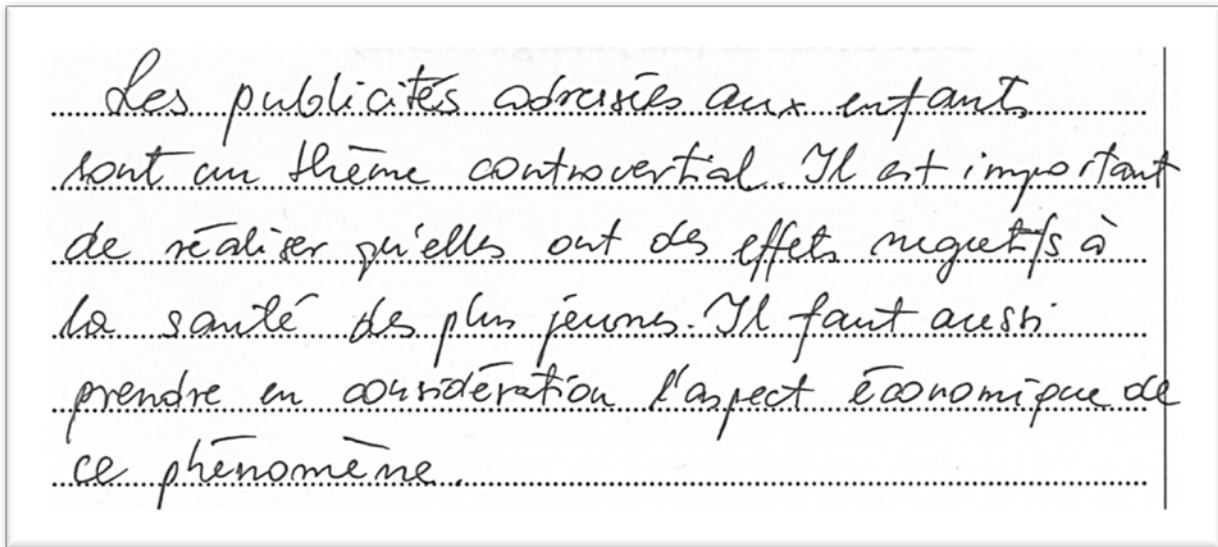 Les publicités adressées aux enfants
sont un thème controvertial. Il est important
de réaliser qu'elles ont des effets negatifs à
la santé des plus jeunes. Il faut aussi
prendre en considération l'aspect économique de
ce phénomène.